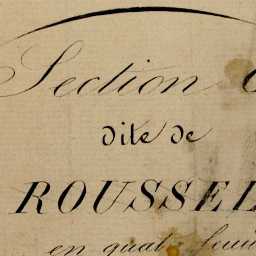 Section
dite de
ROUSSEL
en quat